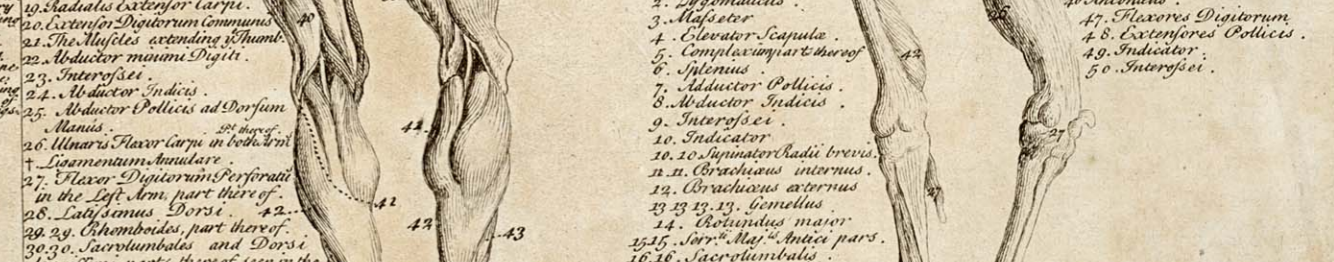 19. Radialis Extensor Carpi.
20. Extensor Digitorum Communis
21. The Muscles extending yᵉ Thumb.
22. Abductor minimi Digiti.
23. Interossei.
24. Abductor Indicis.
25. Abductor Pollicis ad Dorsum
Manus.
Pt thereof.
26. Ulnaris Flexor Carpi in both Arm
†. Ligamentum Annulare.
27. Flexor Digitorum Perforatus
in the Left Arm, part thereof.
28. Latissimus Dorsi.
29.29. Rhomboides, part thereof.
30.30. Sacrolumbales and Dorsi
thereof seen in the
40
41
42
42
42
43
41
3. Masseter
4. Elevator Scapulæ.
5. Complexum part thereof
6. Splenius.
7. Adductor Pollicis.
8. Abductor Indicis.
9. Interossei.
10. Indicator
10.10 Supinator Radii brevis.
11.11. Brachiæus internus.
12. Brachiæus externus
13 13 13.13. Gemellus.
14. Rotundus major
15 15. Serr.ᵗⁱ Maj.ⁱˢ Antici pars.
16.16. Sacrolumbalis.
42
27
26
27
47. Flexores Digitorum
48. Extensores Pollicis.
49. Indicator.
50. Interossei.